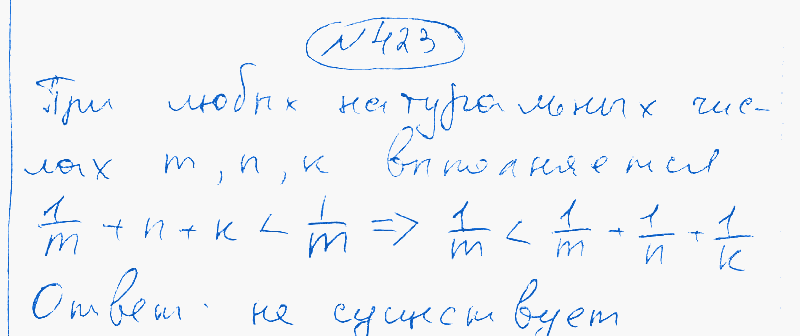 №423
При любых натуральных чис-
лах m, n, k выполняется
1/m + n + k < 1/m => 1/m < 1/m + 1/n + 1/k
Ответ. не существует